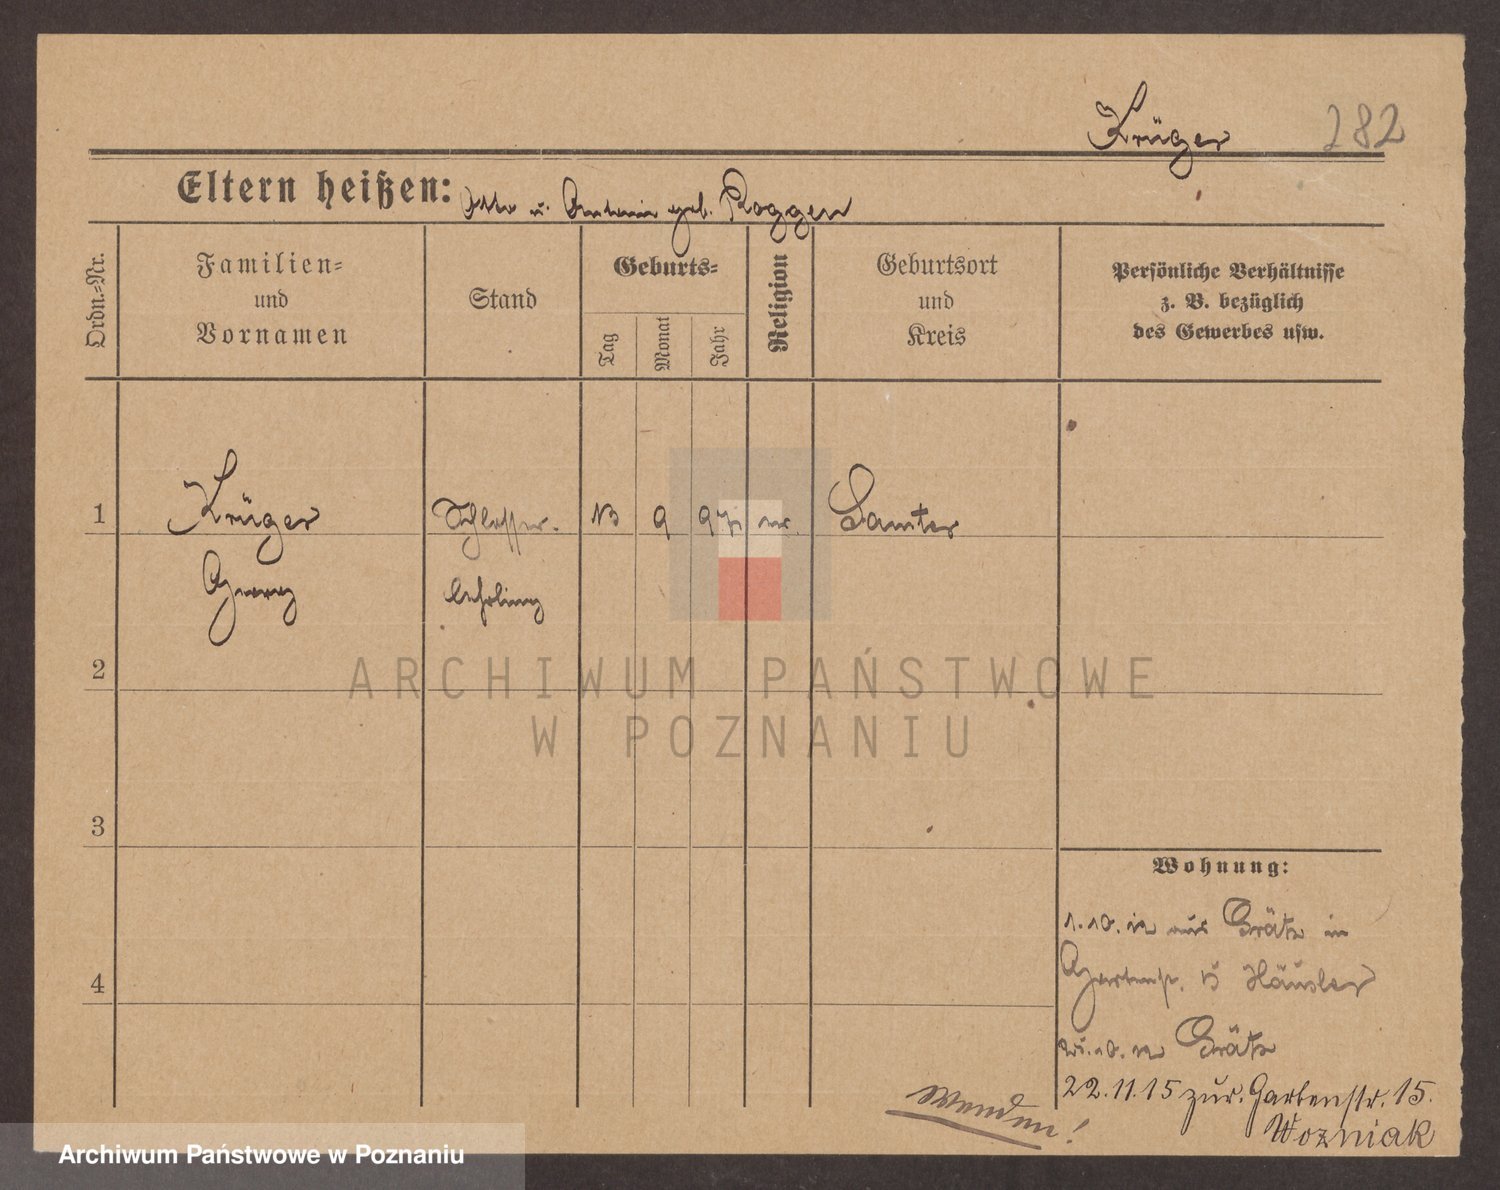 Krüger 282
Eltern heißen: Otto u. Antonie geb. Roggen
Ordn.-Nr.
Familien-
und
Vornamen
Stand
Geburts-
Tag
Monat
Jahr
Religion
Geburtsort
und
Kreis
Persönliche Verhältnisse
z. B. bezüglich
des Gewerbes usw.
1 Krüger Schlosser- 13 9 97 Samter
Georg lehrling
2
3
4
ARCHIWUM PAŃSTWOWE
W POZNANIU
Wohnung:
1.10.12 aus Grätz in
Gartenstr. 15 Häusler
Grätz
22.11.15 zur. Gartenstr. 15.
Wozniak
Wenden!
Archiwum Państwowe w Poznaniu